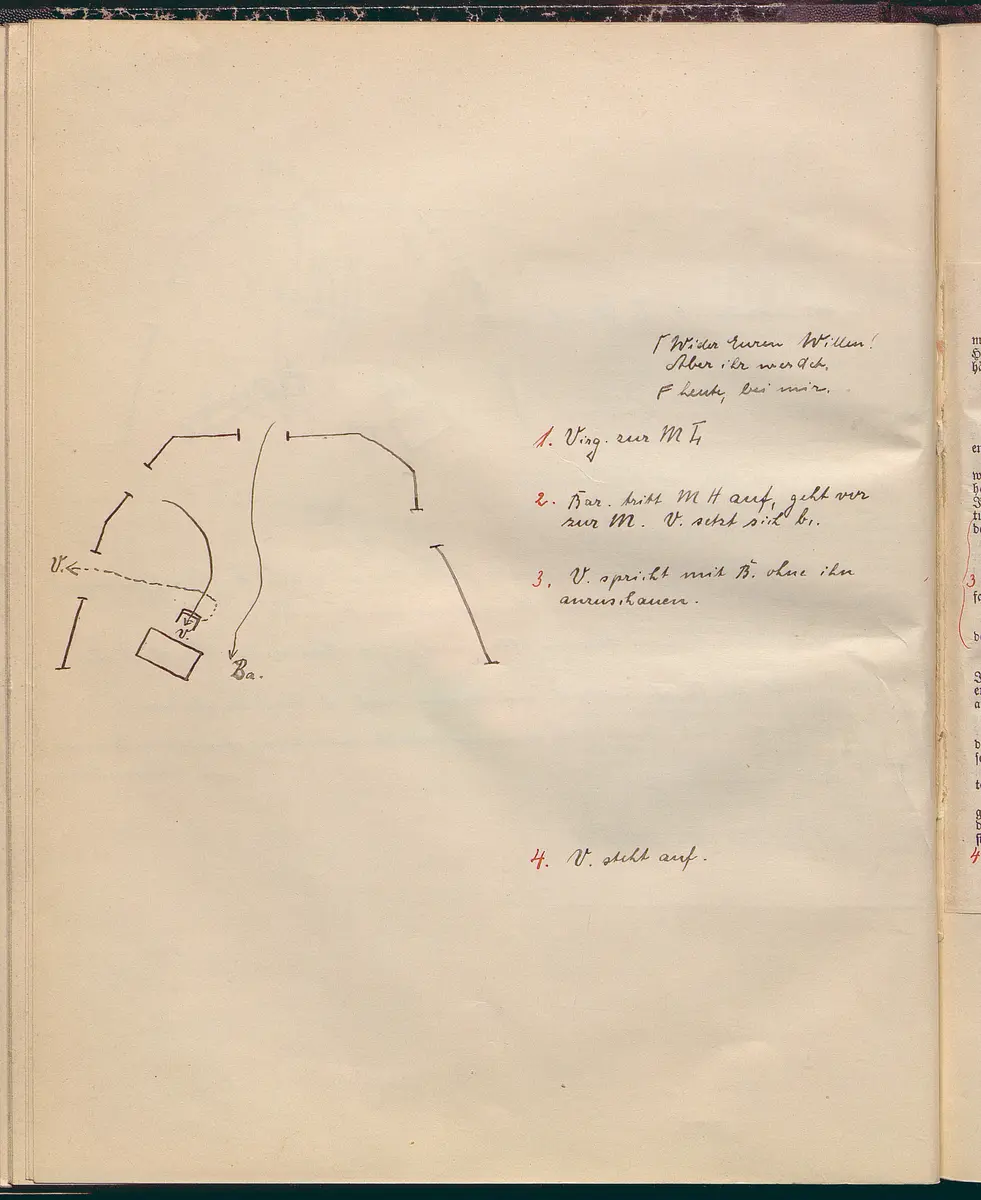 Wider Euren Willen!
Aber ihr werdet,
F heute, bei mir.
1. Virg. zur M
2. Bar. tritt M H auf, geht vor
zur M. V. setzt sich
3. V. spricht mit B. ohne ihn
anzuschauen.
V.
V.
Ba.
4. V. steht auf.
3
4